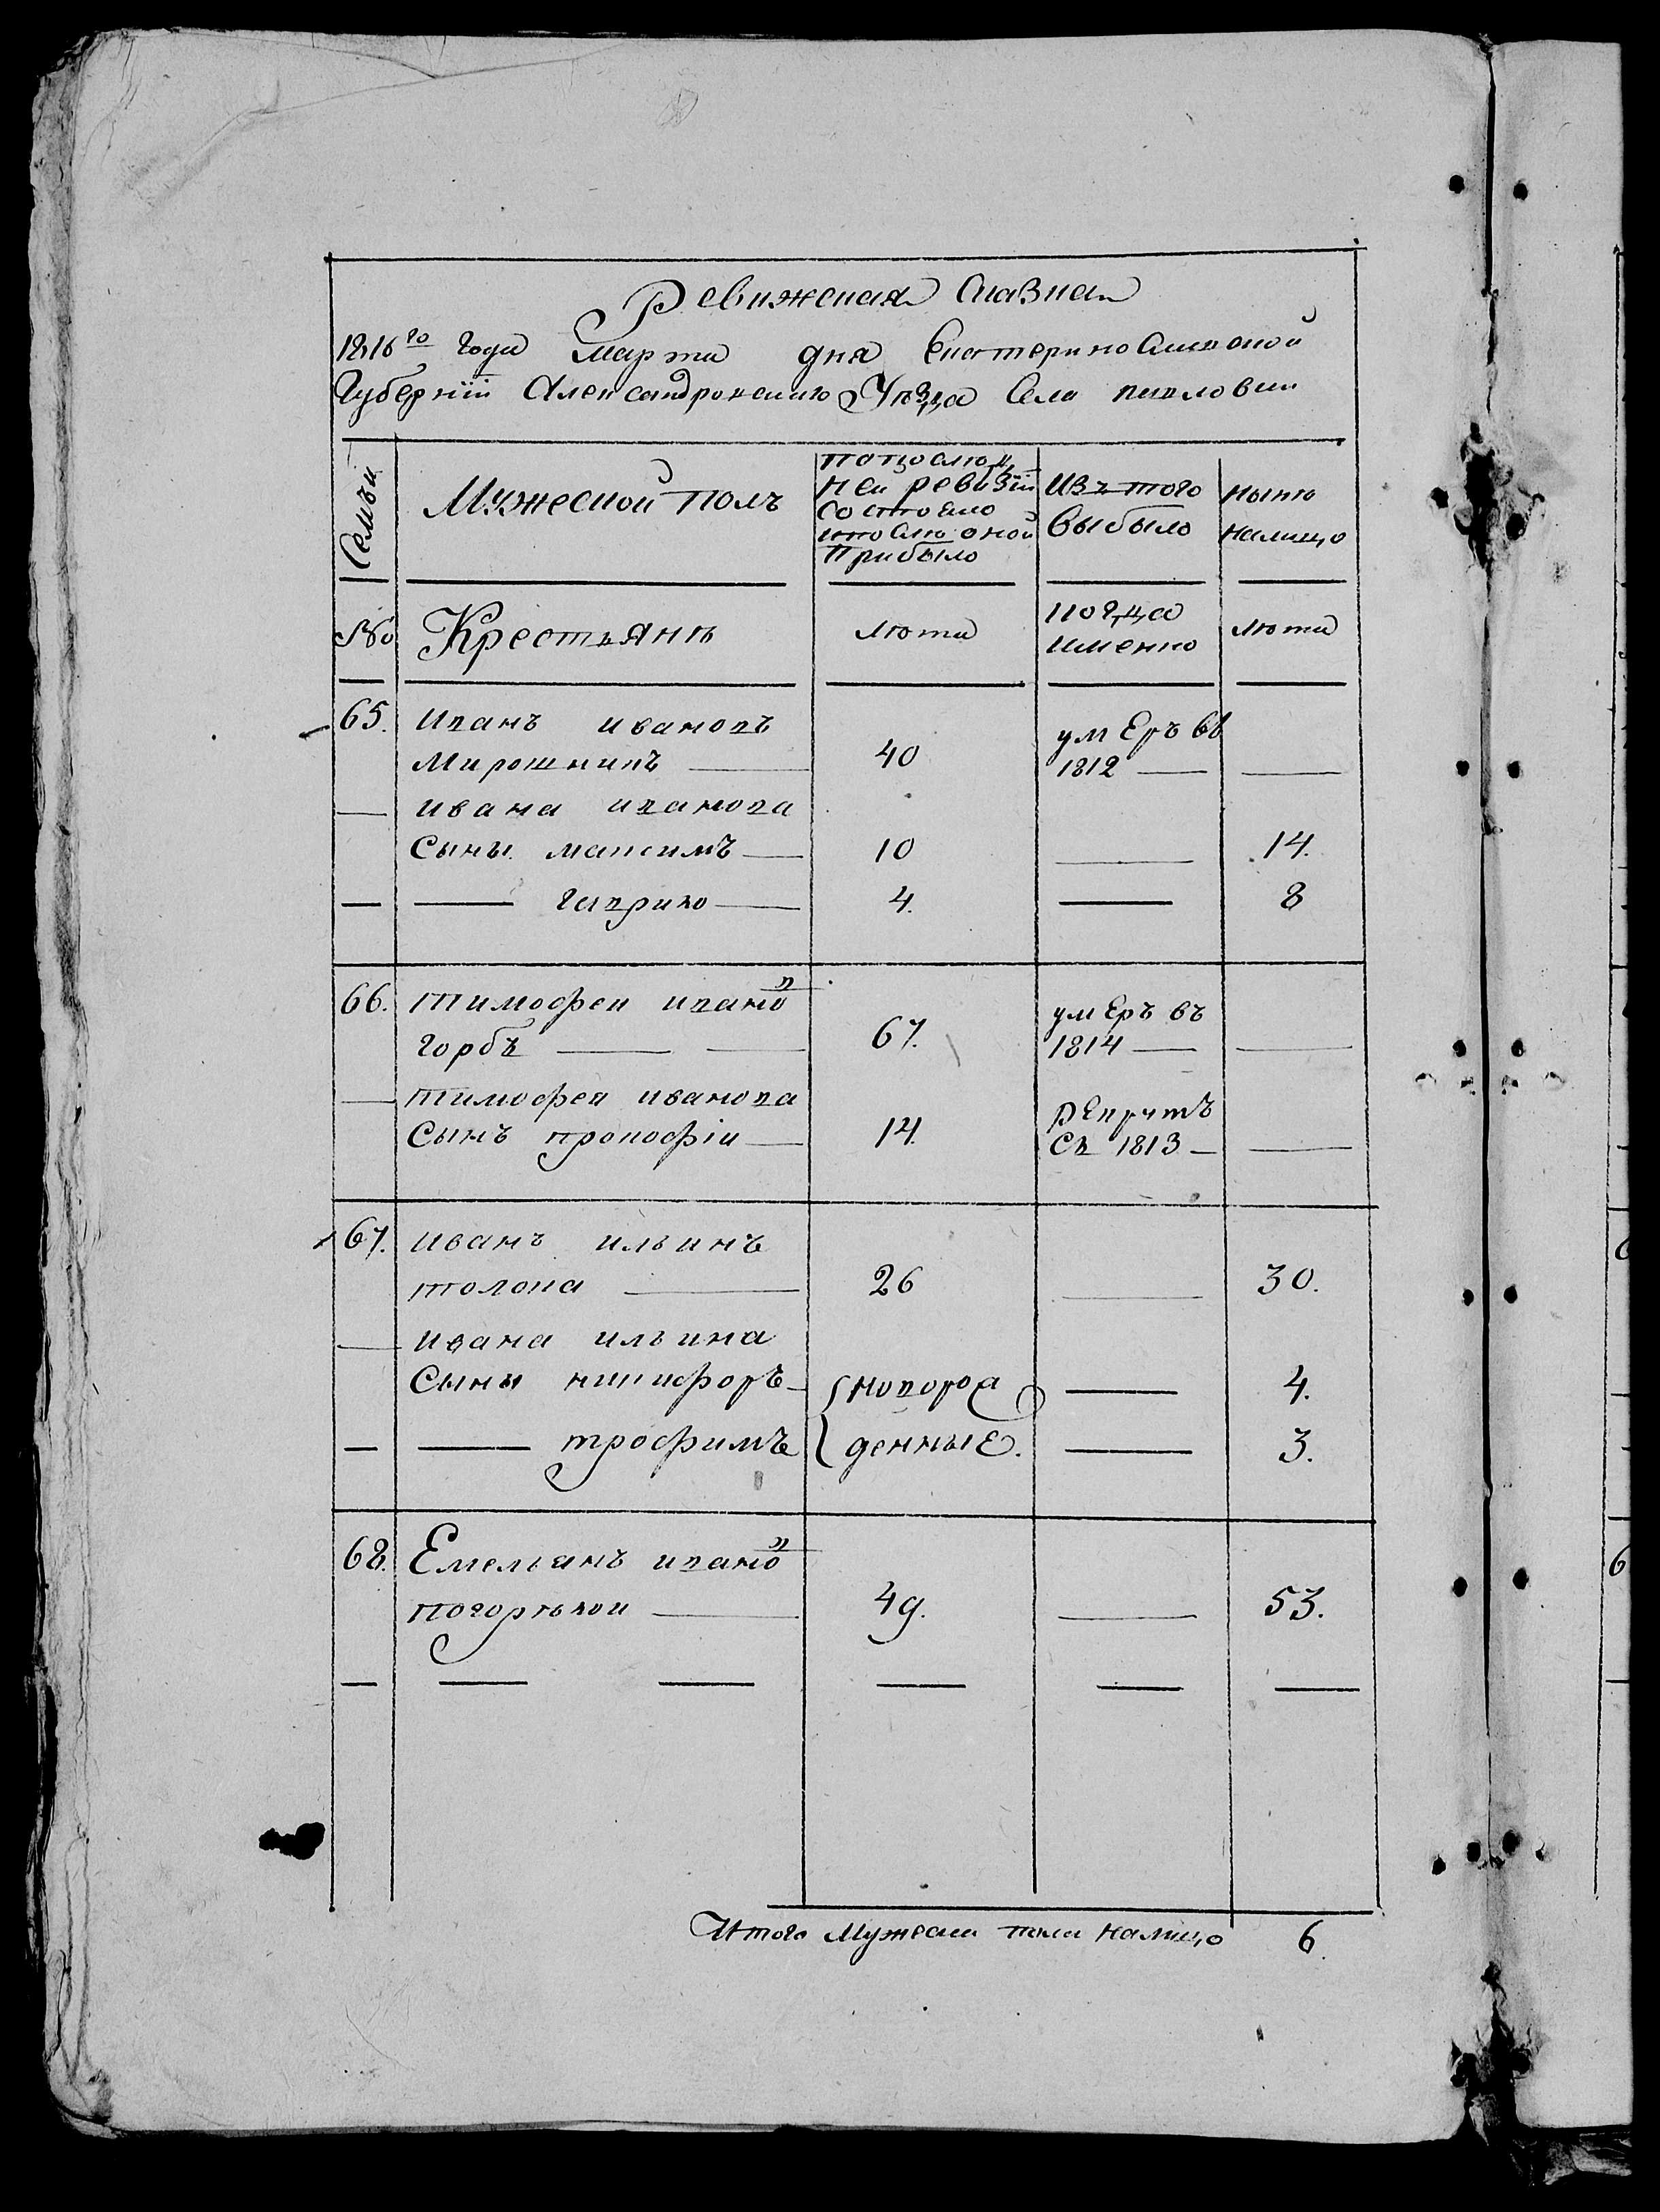 Ревижская сказка
1816го Года Марта дня Екатеринославской
Губернiи Александровскаго Уѣзда Села павловки
Семьи
Мужеской полъ
попослѣд
ней ревизiи
состояло
ипослѣ оной
прибыло
Изъ того
выбыло
нынѣ
налицо
№
Крестьянѣ
лѣта
когда
именно
лѣта
65. Иванъ ивановъ
Мирошникъ 40 умЕръ въ
1812
ивана иванова
Сыны максимъ 10 14.
гаврило 4. 8
66. тимофеи ивановъ
горбъ 67. умЕръ въ
1814
тимофея иванова
Сынъ прокофiи 14. рЕкрутъ
Съ 1813
67. иванъ ильинъ
толока 26 30.
ивана ильина
Сыны никифоръ новорож 4.
трофимъ денныЕ. 3.
68. Емельянъ ивановъ
погорѣлои 49. 53.
Итого Мужеска пола налицо 6.